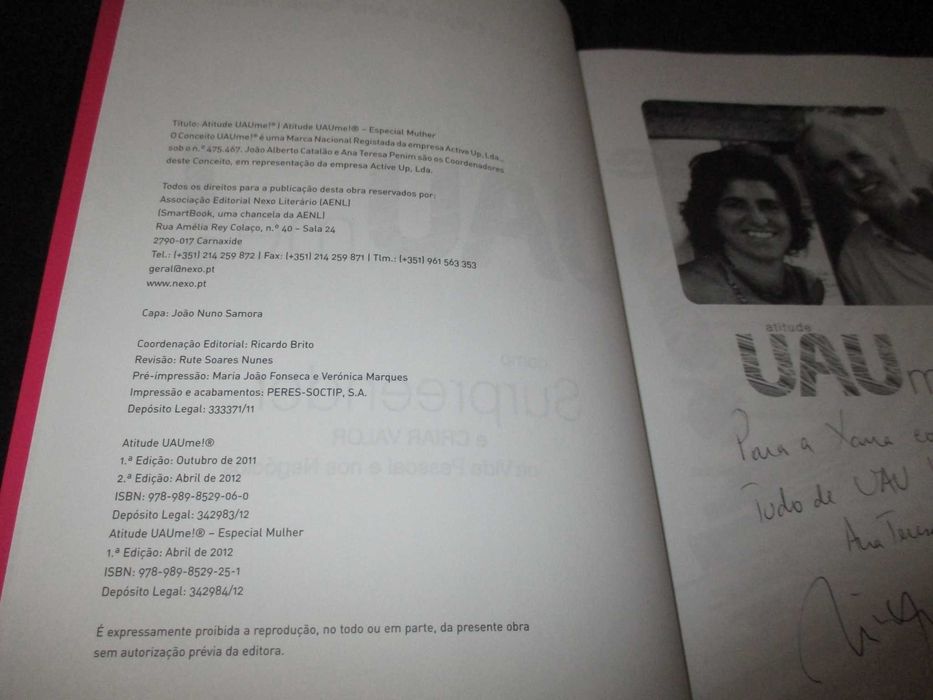 Título: Atitude UAUme!® | Atitude UAUme!® – Especial Mulher
O Conceito UAUme!® é uma Marca Nacional Registada da empresa Active Up, Lda.,
sob o n.º 475.467. João Alberto Catalão e Ana Teresa Penim são os Coordenadores
deste Conceito, em representação da empresa Active Up, Lda.
Todos os direitos para a publicação desta obra reservados por:
Associação Editorial Nexo Literário (AENL)
(SmartBook, uma chancela da AENL)
Rua Amélia Rey Colaço, n.º 40 – Sala 24
2790-017 Carnaxide
Tel.: (+351) 214 259 872 | Fax: (+351) 214 259 871 | Tlm.: (+351) 961 563 353
geral@nexo.pt
www.nexo.pt
Capa: João Nuno Samora
Coordenação Editorial: Ricardo Brito
Revisão: Rute Soares Nunes
Pré-impressão: Maria João Fonseca e Verónica Marques
Impressão e acabamentos: PERES-SOCTIP, S.A.
Depósito Legal: 333371/11
Atitude UAUme!®
1.ª Edição: Outubro de 2011
2.ª Edição: Abril de 2012
ISBN: 978-989-8529-06-0
Depósito Legal: 342983/12
Atitude UAUme!® – Especial Mulher
1.ª Edição: Abril de 2012
ISBN: 978-989-8529-25-1
Depósito Legal: 342984/12
É expressamente proibida a reprodução, no todo ou em parte, da presente obra
sem autorização prévia da editora.
atitude
UAUm
Para a Xana co
Tudo de UAU
Ana Teres